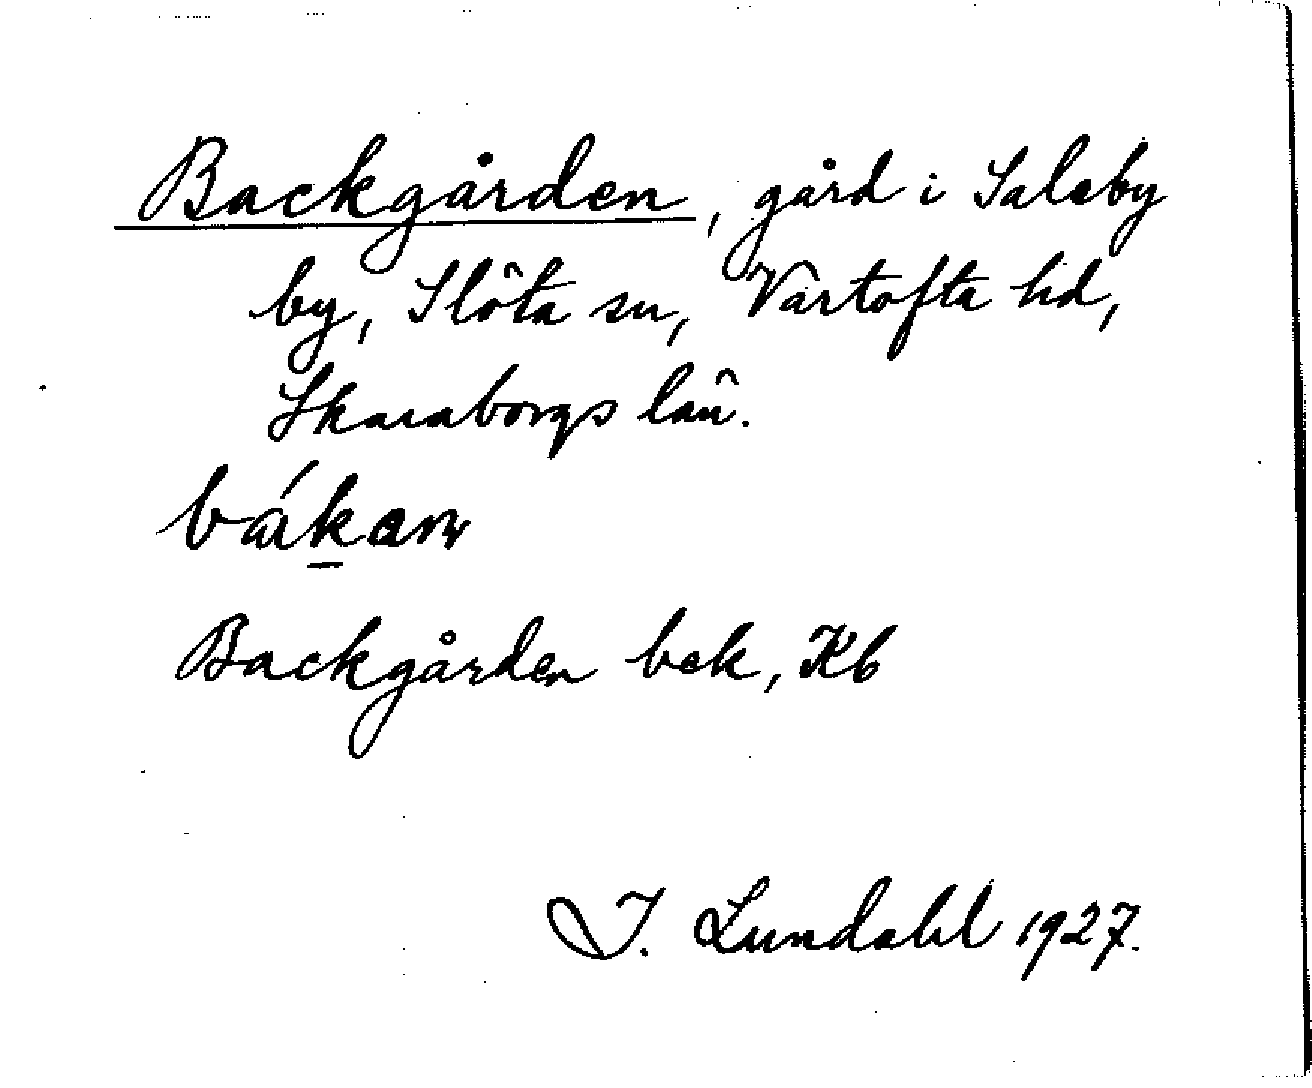 Backgården, gård i Saleby
by, Slöta sn, Vartofta hd,
Skaraborgs län.
bákan
Backgården bek, Kb
I. Lundahl 1927.